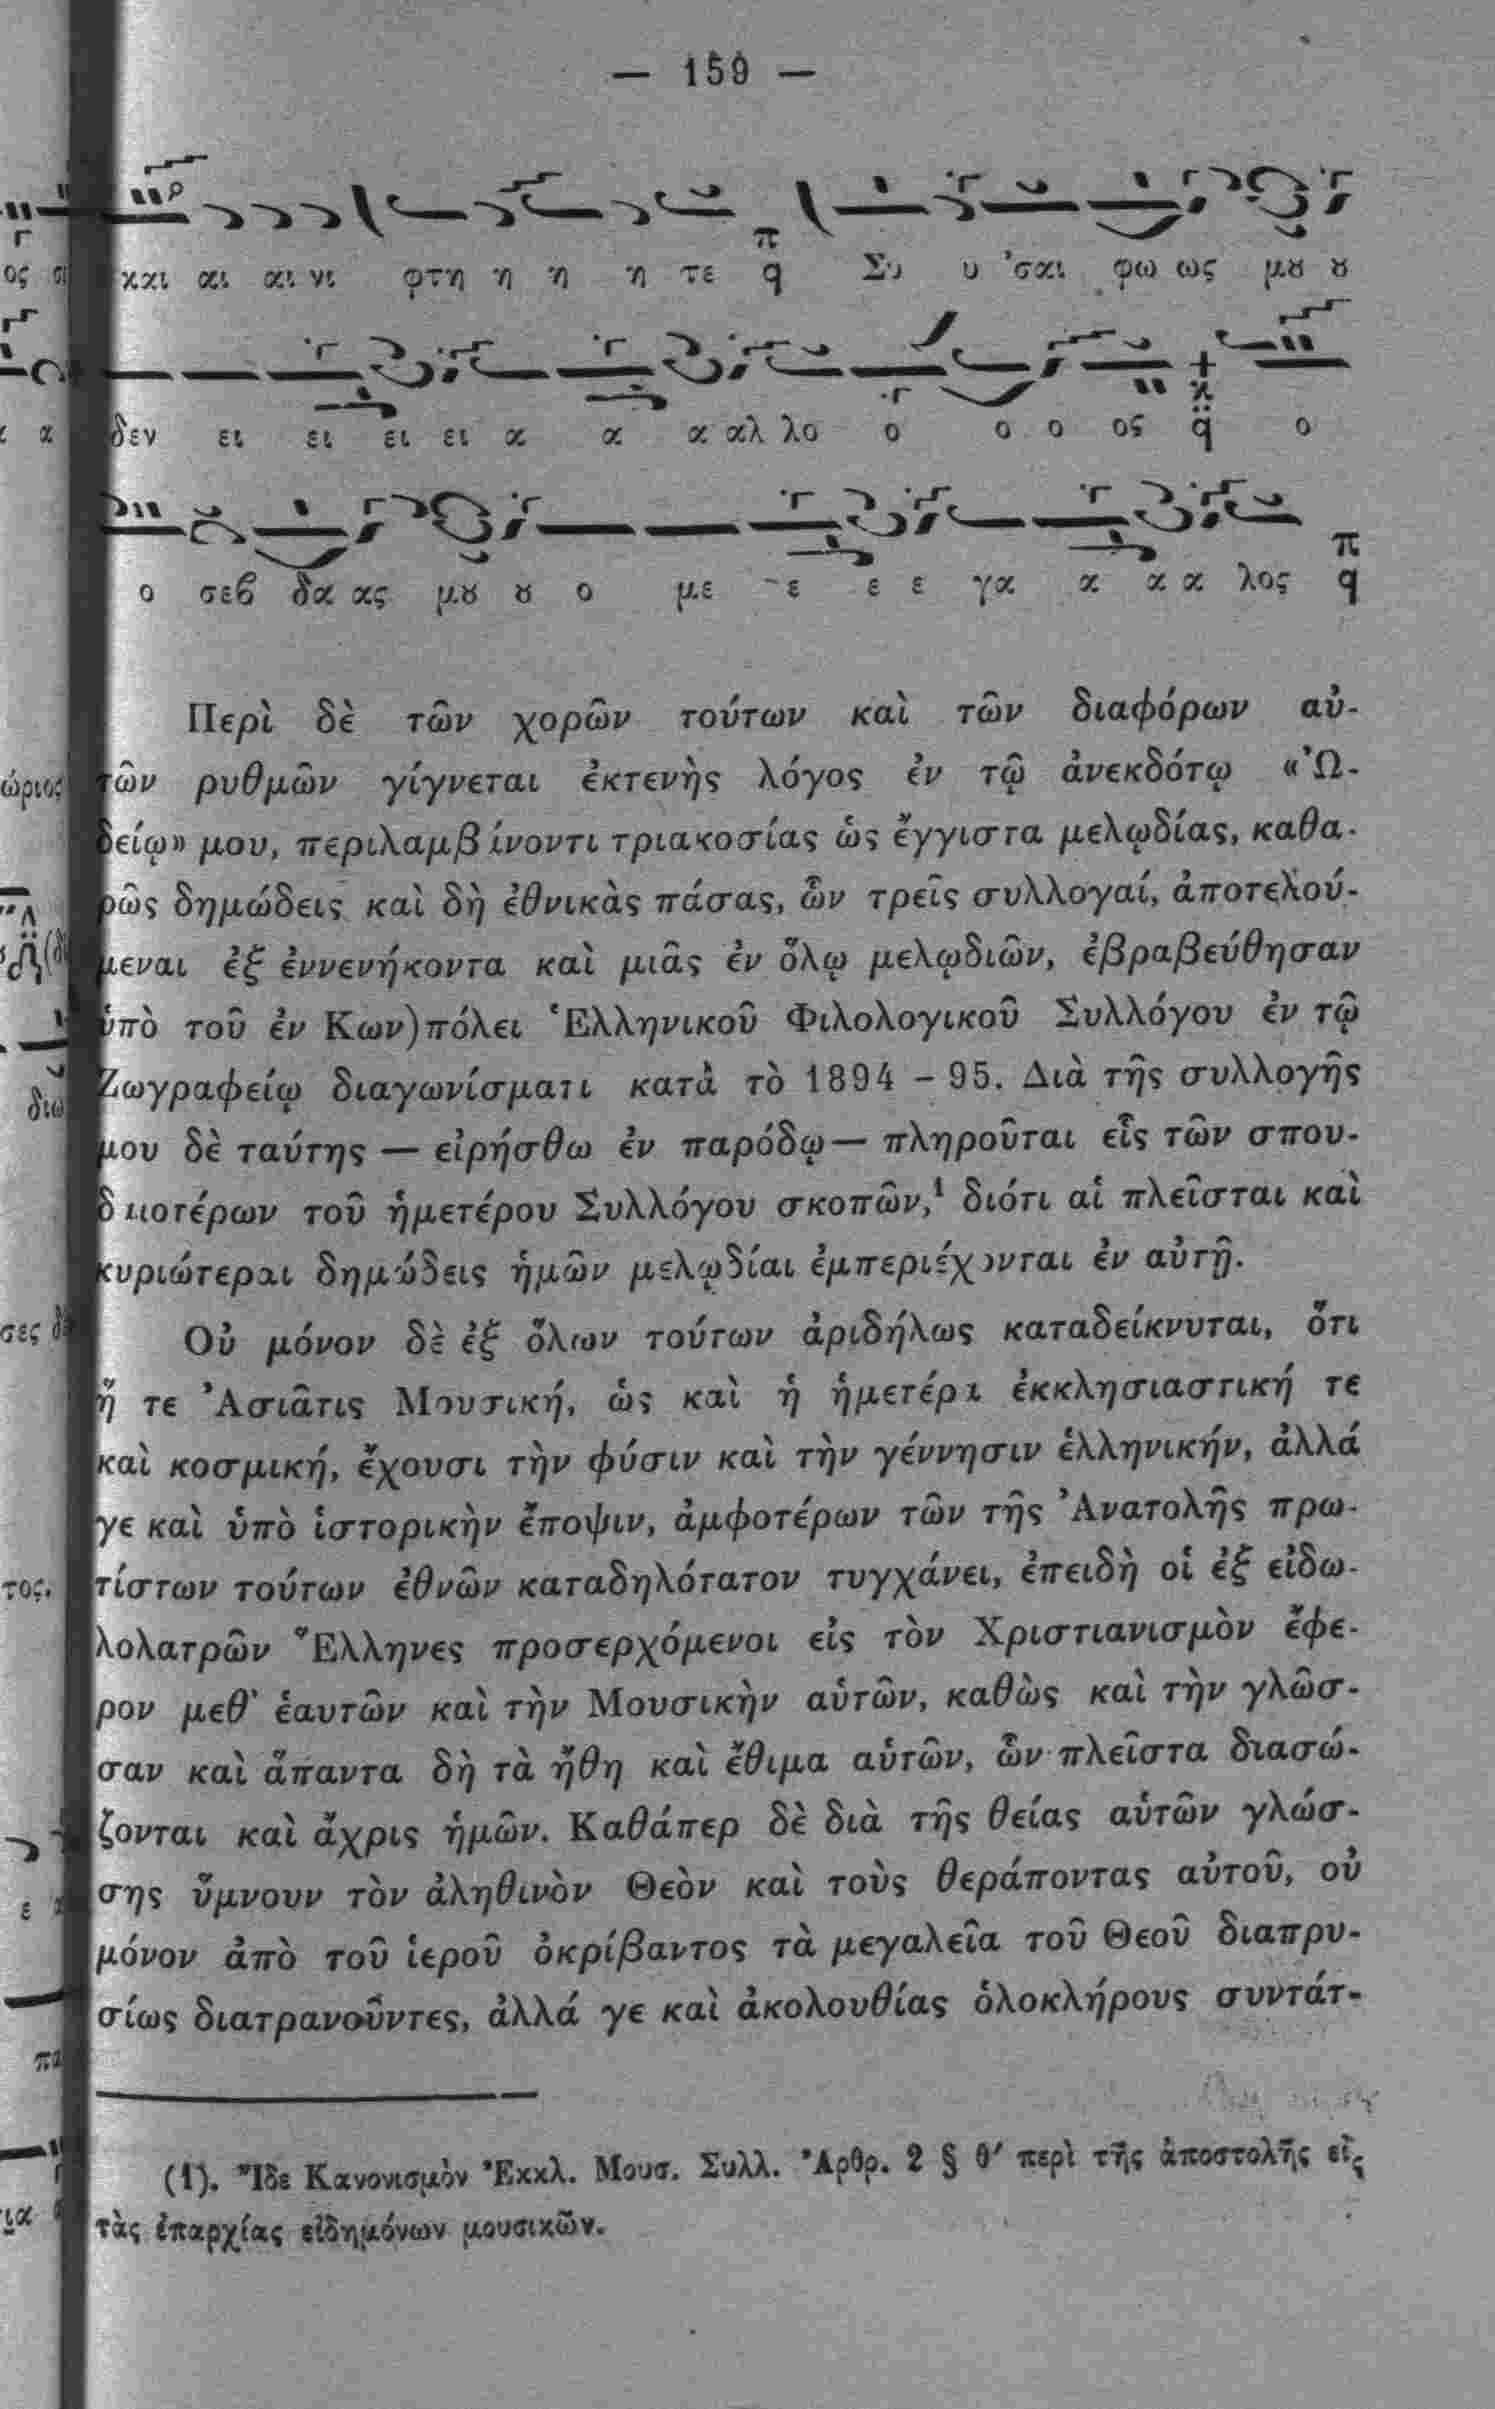 — 159 —
και αι αι νι φτη η η η τε π q Συ υ 'σαι φω ως μȣ ȣ
δεν ει ει ει ει α α α αλ λο ο ο ο ος q ο
ο σεβ δα ας μȣ ȣ ο με ε ε ε γα α α α λος π q
Περὶ δὲ τῶν χορῶν τούτων καὶ τῶν διαφόρων αὐ-
τῶν ρυθμῶν γίγνεται ἐκτενὴς λόγος ἐν τῷ ἀνεκδότῳ «Ὠ-
δείῳ» μου, περιλαμβάνοντι τριακοσίας ὡς ἔγγιστα μελῳδίας, καθα-
ρῶς δημώδεις καὶ δὴ ἐθνικὰς πάσας, ὧν τρεῖς συλλογαί, ἀποτελού-
μεναι ἐξ ἐννενήκοντα καὶ μιᾶς ἐν ὅλῳ μελῳδιῶν, ἐβραβεύθησαν
ὑπὸ τοῦ ἐν Κων)πόλει Ἑλληνικοῦ Φιλολογικοῦ Συλλόγου ἐν τῷ
Ζωγραφείῳ διαγωνίσματι κατὰ τὸ 1894 - 95. Διὰ τῆς συλλογῆς
μου δὲ ταύτης — εἰρήσθω ἐν παρόδῳ— πληροῦται εἷς τῶν σπου-
δαιοτέρων τοῦ ἡμετέρου Συλλόγου σκοπῶν,¹ διότι αἱ πλεῖσται καὶ
κυριώτεραι δημώδεις ἡμῶν μελῳδίαι ἐμπεριέχονται ἐν αὐτῇ.
Οὐ μόνον δὲ ἐξ ὅλων τούτων ἀριδήλως καταδείκνυται, ὅτι
ἥ τε Ἀσιᾶτις Μουσική, ὡς καὶ ἡ ἡμετέρα ἐκκλησιαστική τε
καὶ κοσμική, ἔχουσι τὴν φύσιν καὶ τὴν γέννησιν ἑλληνικήν, ἀλλά
γε καὶ ὑπὸ ἱστορικὴν ἔποψιν, ἀμφοτέρων τῶν τῆς Ἀνατολῆς πρω-
τίστων τούτων ἐθνῶν καταδηλότατον τυγχάνει, ἐπειδὴ οἱ ἐξ εἰδω-
λολατρῶν Ἕλληνες προσερχόμενοι εἰς τὸν Χριστιανισμὸν ἔφε-
ρον μεθ' ἑαυτῶν καὶ τὴν Μουσικὴν αὑτῶν, καθὼς καὶ τὴν γλῶσ-
σαν καὶ ἅπαντα δὴ τὰ ἤθη καὶ ἔθιμα αὑτῶν, ὧν πλεῖστα διασώ-
ζονται καὶ ἄχρις ἡμῶν. Καθάπερ δὲ διὰ τῆς θείας αὑτῶν γλώσ-
σης ὕμνουν τὸν ἀληθινὸν Θεὸν καὶ τοὺς θεράποντας αὐτοῦ, οὐ
μόνον ἀπὸ τοῦ ἱεροῦ ὀκρίβαντος τὰ μεγαλεῖα τοῦ Θεοῦ διαπρυ-
σίως διατρανοῦντες, ἀλλά γε καὶ ἀκολουθίας ὁλοκλήρους συντάτ-
(1). Ἴδε Κανονισμὸν Ἐκκλ. Μουσ. Συλλ. Ἄρθρ. 2 § θ′ περὶ τῆς ἀποστολῆς εἰς
τὰς ἐπαρχίας εἰδημόνων μουσικῶν.